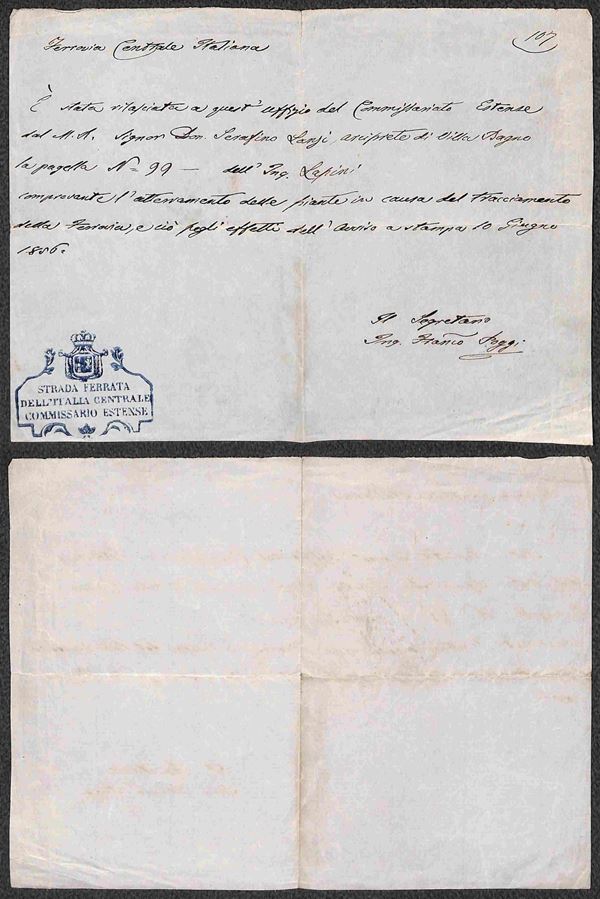 107
Ferrovia Centrale Italiana
È stata rilasciata a quest' uffizio del Commissariato Estense
dal M. R. Signor Don Serafino Lanzi, arciprete di Villa Bagno
la pagella N= 99 — dell' Ing. Lapini
comprovante l'atterramento delle piante in causa del tracciamento
della Ferrovia, e ciò pegli effetti dell' Avviso a stampa 10 Giugno
1856.
Il Segretario
Ing. Franco Poggi
STRADA FERRATA
DELL'ITALIA CENTRALE
COMMISSARIO ESTENSE